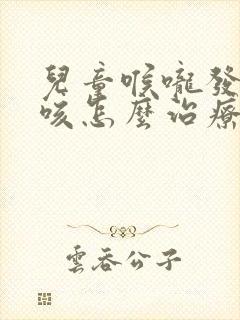 兒童喉嚨發
咳怎麼治療
雲吞公子